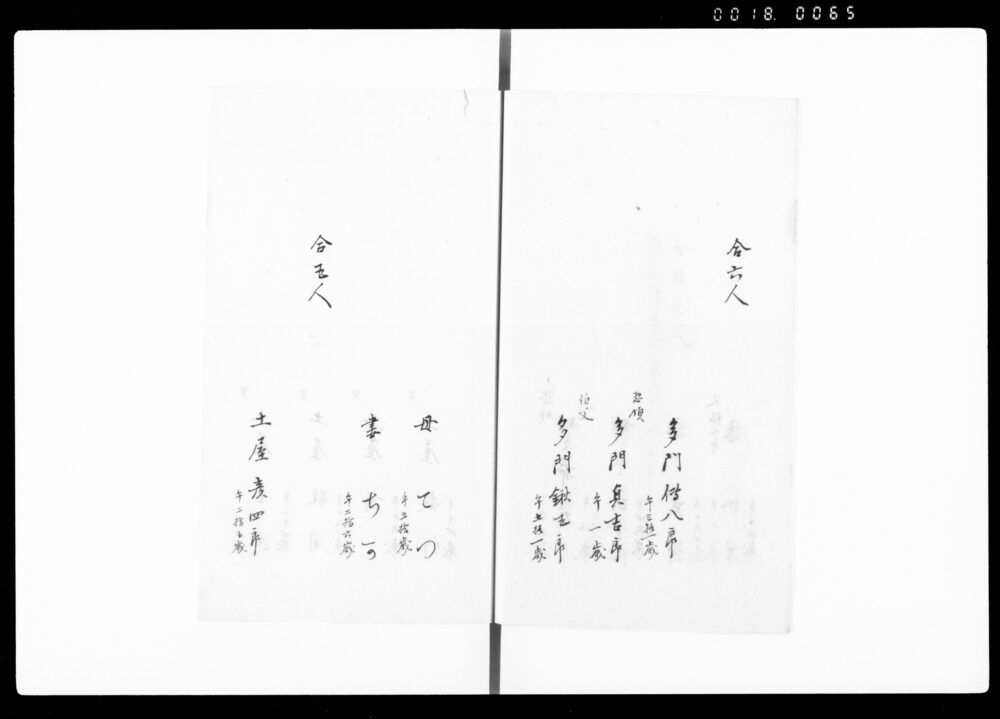 0018. 0065
合六人
多門借八郎
午三拾一歳
惣領
多門真吉郎
午一歳
伯父
多門鍬五郎
午五拾一歳
合五人
母てつ
午五拾歳
妻ち可
午二拾六歳
土屋彦四郎
午二拾五歳